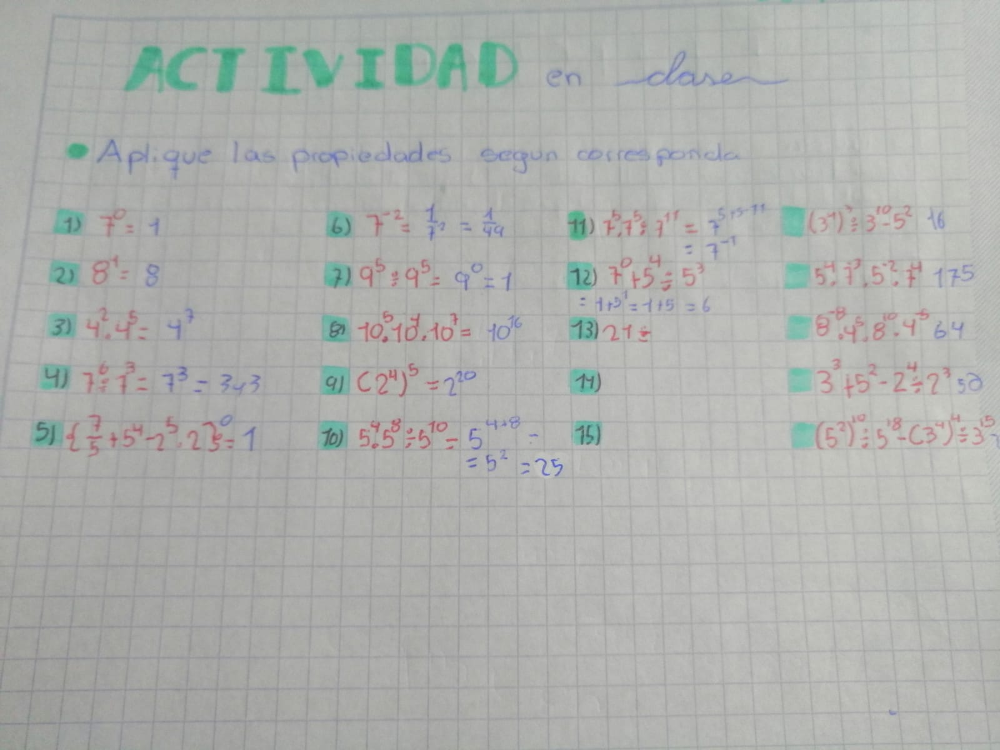 ACTIVIDAD en clase
• Aplique las propiedades segun corresponda
1) 7⁰ = 1
2) 8¹ = 8
3) 4² · 4⁵ = 4⁷
4) 7⁶ ÷ 7³ = 7³ = 343
5) {7/5 + 5⁴ - 2⁵ · 2}⁰ = 1
6) 7⁻² = 1/7² = 1/49
7) 9⁵ ÷ 9⁵ = 9⁰ = 1
8) 10⁵ · 10⁴ · 10⁷ = 10¹⁶
9) (2⁴)⁵ = 2²⁰
10) 5⁴ · 5⁸ ÷ 5¹⁰ = 5⁴⁺⁸ -
= 5² = 25
11) 7⁵ · 7⁵ ÷ 7¹¹ = 7⁵⁺⁵⁻¹¹
= 7⁻¹
12) 7⁰ + 5⁴ ÷ 5³
= 1 + 5¹ = 1 + 5 = 6
13) 21 ÷
14)
15)
÷ 3¹⁰ - 5² 16
175
8⁻⁸ · 4⁵ · 8¹⁰ · 4⁻⁵ 64
3³ + 5² - 2⁴ ÷ 2³ 50
(5²)¹⁰ ÷ 5¹⁸ - (3⁴)⁴ ÷ 3¹⁵